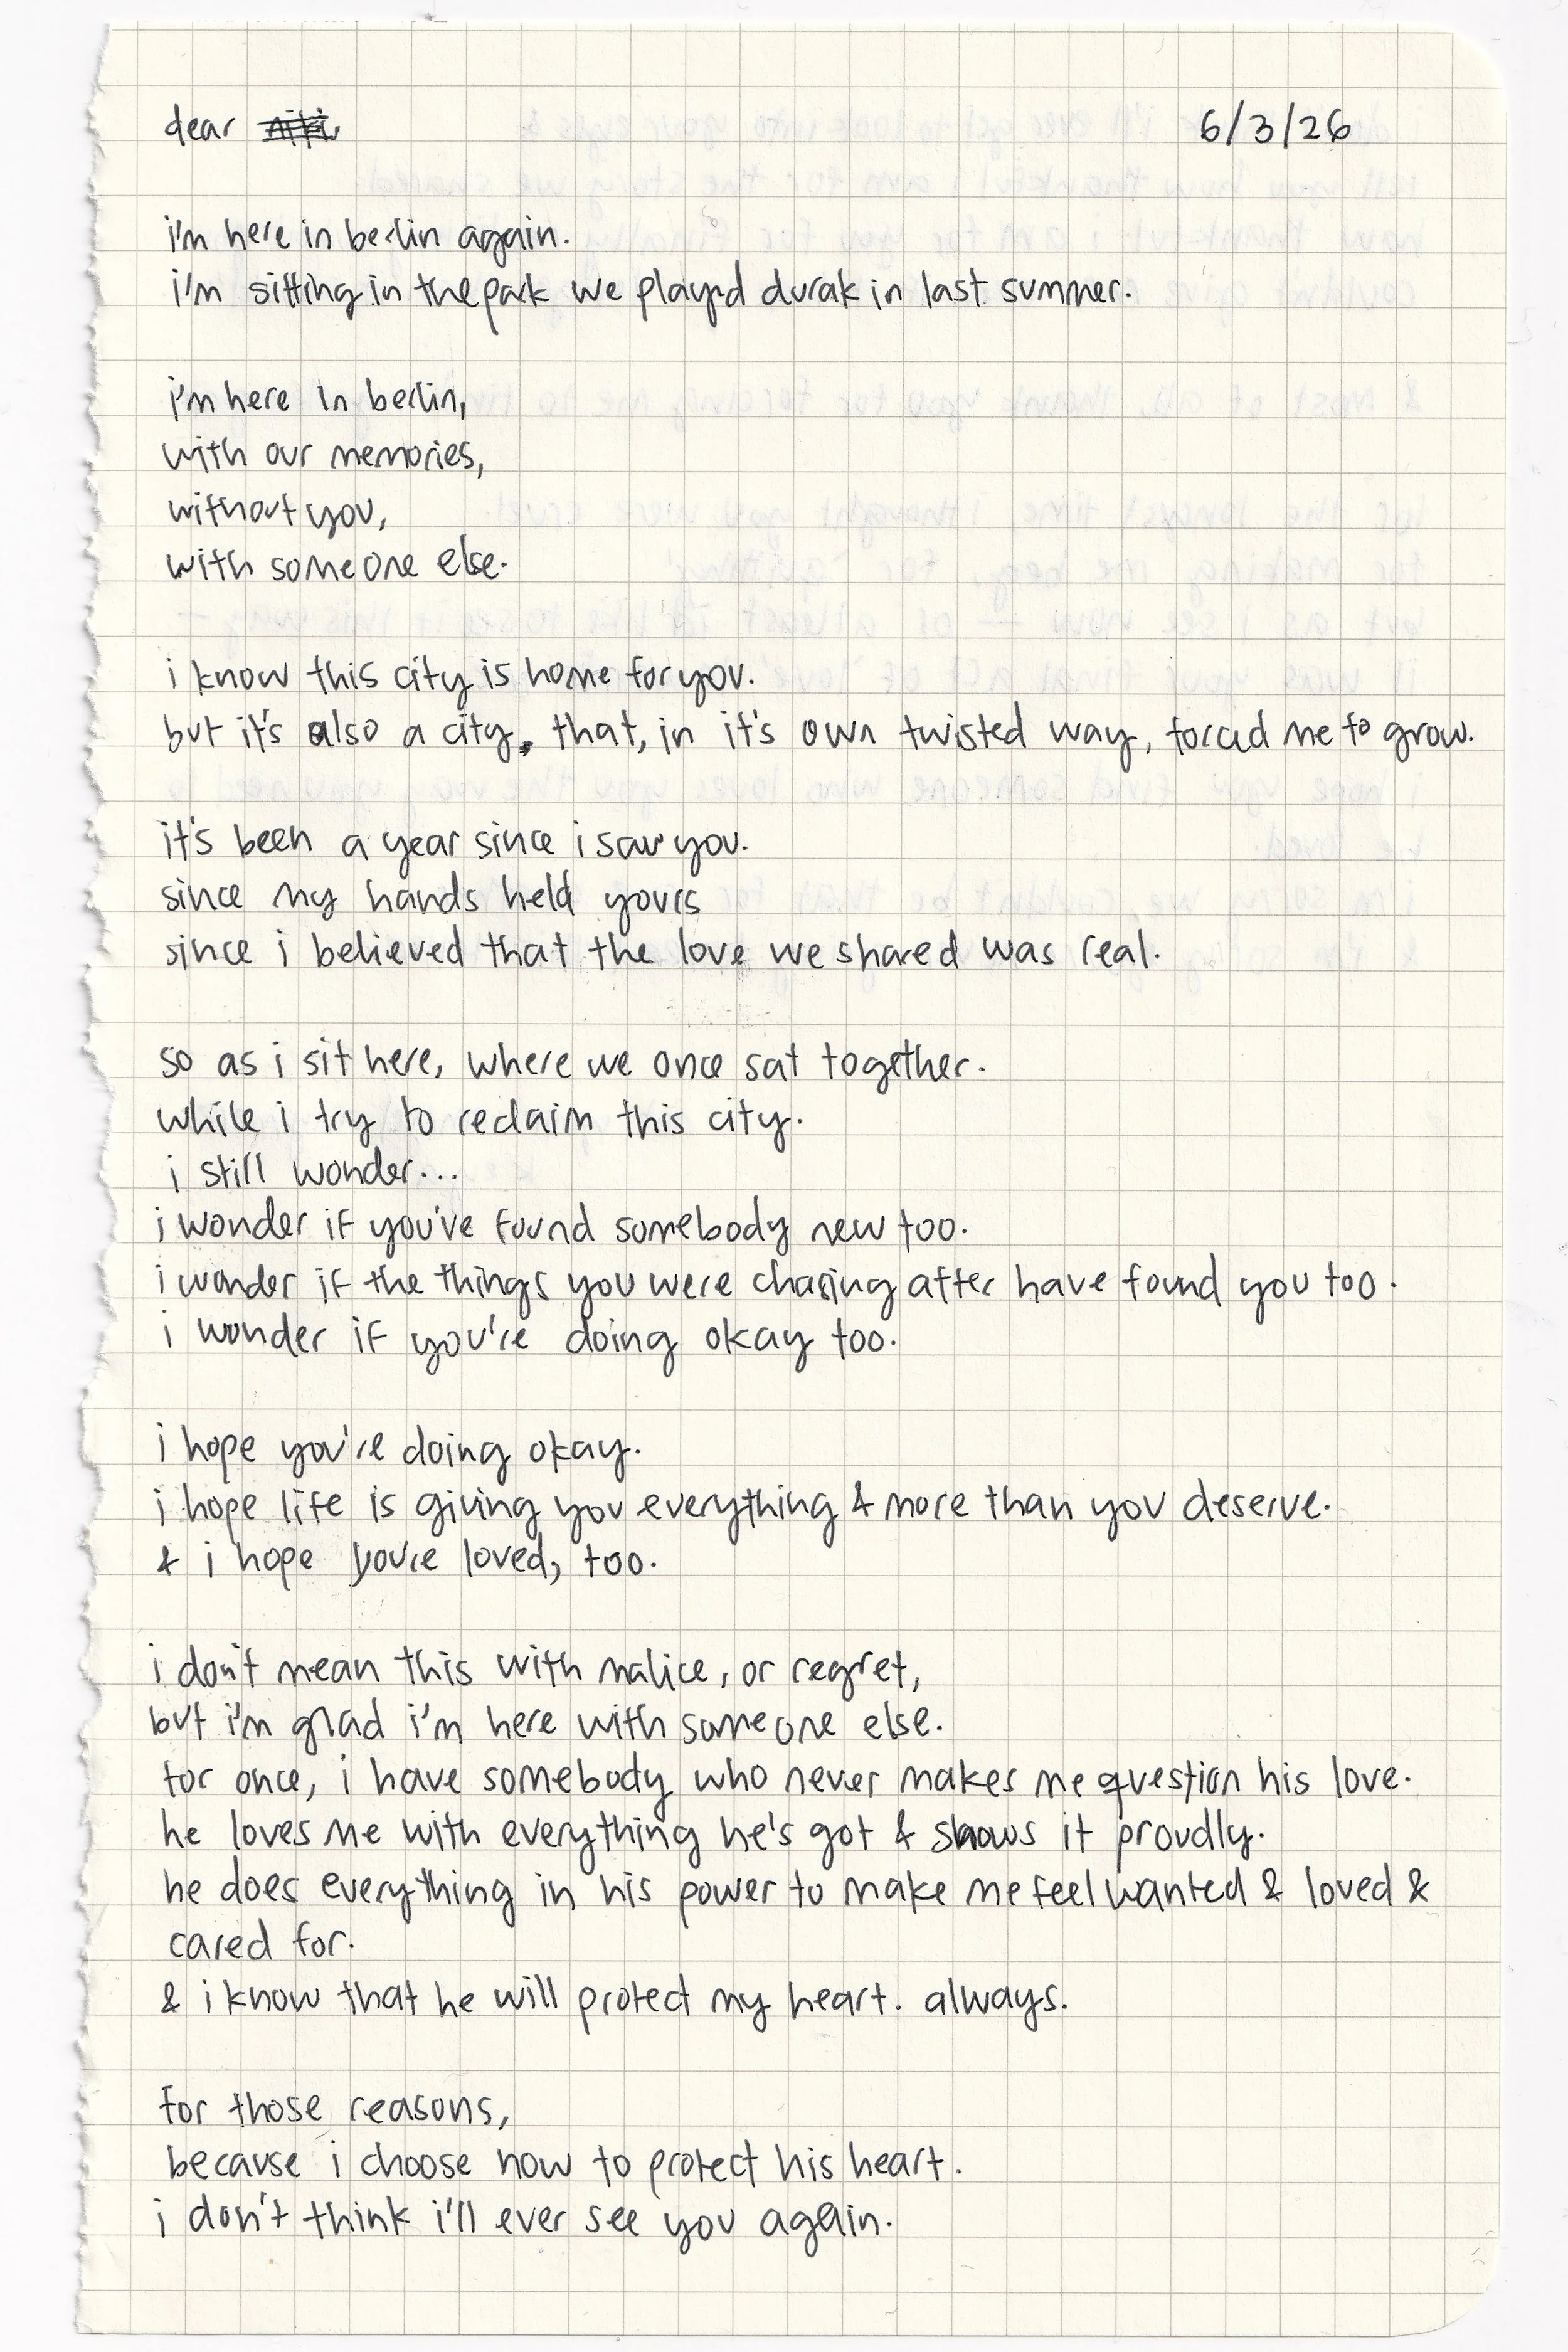 dear
6/3/26
i'm here in berlin again.
i'm sitting in the park we played durak in last summer.
i'm here in berlin,
with our memories,
without you,
with someone else.
i know this city is home for you.
but it's also a city, that, in it's own twisted way, forced me to grow.
it's been a year since i saw you.
since my hands held yours
since i believed that the love we shared was real.
so as i sit here, where we once sat together.
while i try to reclaim this city.
i still wonder...
i wonder if you've found somebody new too.
i wonder if the things you were chasing after have found you too.
i wonder if you're doing okay too.
i hope you're doing okay.
i hope life is giving you everything & more than you deserve.
& i hope you're loved, too.
i don't mean this with malice, or regret,
but i'm glad i'm here with someone else.
for once, i have somebody who never makes me question his love.
he loves me with everything he's got & shows it proudly.
he does everything in his power to make me feel wanted & loved &
cared for.
& i know that he will protect my heart. always.
for those reasons,
because i choose now to protect his heart.
i don't think i'll ever see you again.